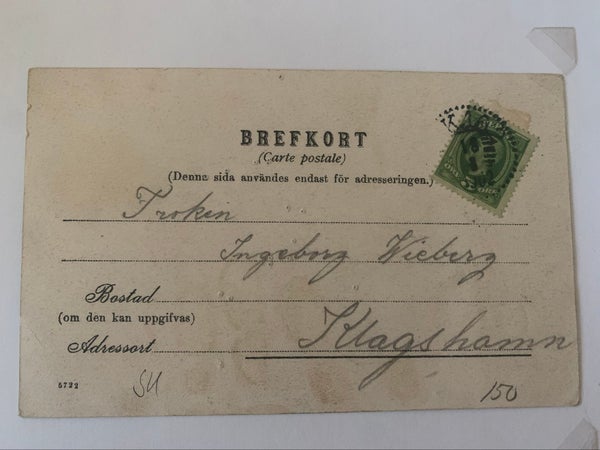 BREFKORT
(Carte postale)
(Denna sida användes endast för adresseringen.)
Fröken
Ingeborg Wieberg
Bostad
(om den kan uppgifvas)
Klagshamn
Adressort
5722
SU
150
5 ÖRE